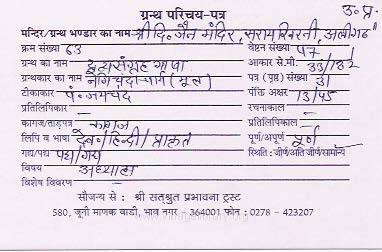 उ. प्र.
ग्रन्थ परिचय-पत्र
मन्दिर/ग्रन्थ भण्डार का नाम श्री दि. जैन मंदिर, सरायखिरनी, अलीगढ
क्रम संख्या 63 वेष्टन संख्या 47
ग्रन्थ का नाम द्रव्यसंग्रह भाषा आकार से.मी. 33/13½
ग्रन्थकार का नाम नेमिचंदाचार्य (मूल) पत्र (पृष्ठ) संख्या 31
टीकाकार पं. जयचंद पंक्ति अक्षर 13/45
प्रतिलिपिकार - रचनाकाल -
कागज/ताड़पत्र कागज प्रतिलिपिकाल -
लिपि व भाषा देव./हिन्दी/प्राकृत पूर्ण/अपूर्ण पूर्ण
गद्य/पद्य पद्य/गद्य स्थिति : जीर्ण/अति जीर्ण/सामान्य
विषय अध्यात्म
विशेष विवरण -
सौजन्य से : श्री सत्श्रुत प्रभावना ट्रस्ट
580, जूनी माणक वाडी, भाव नगर - 364001 फोन : 0278 - 423207